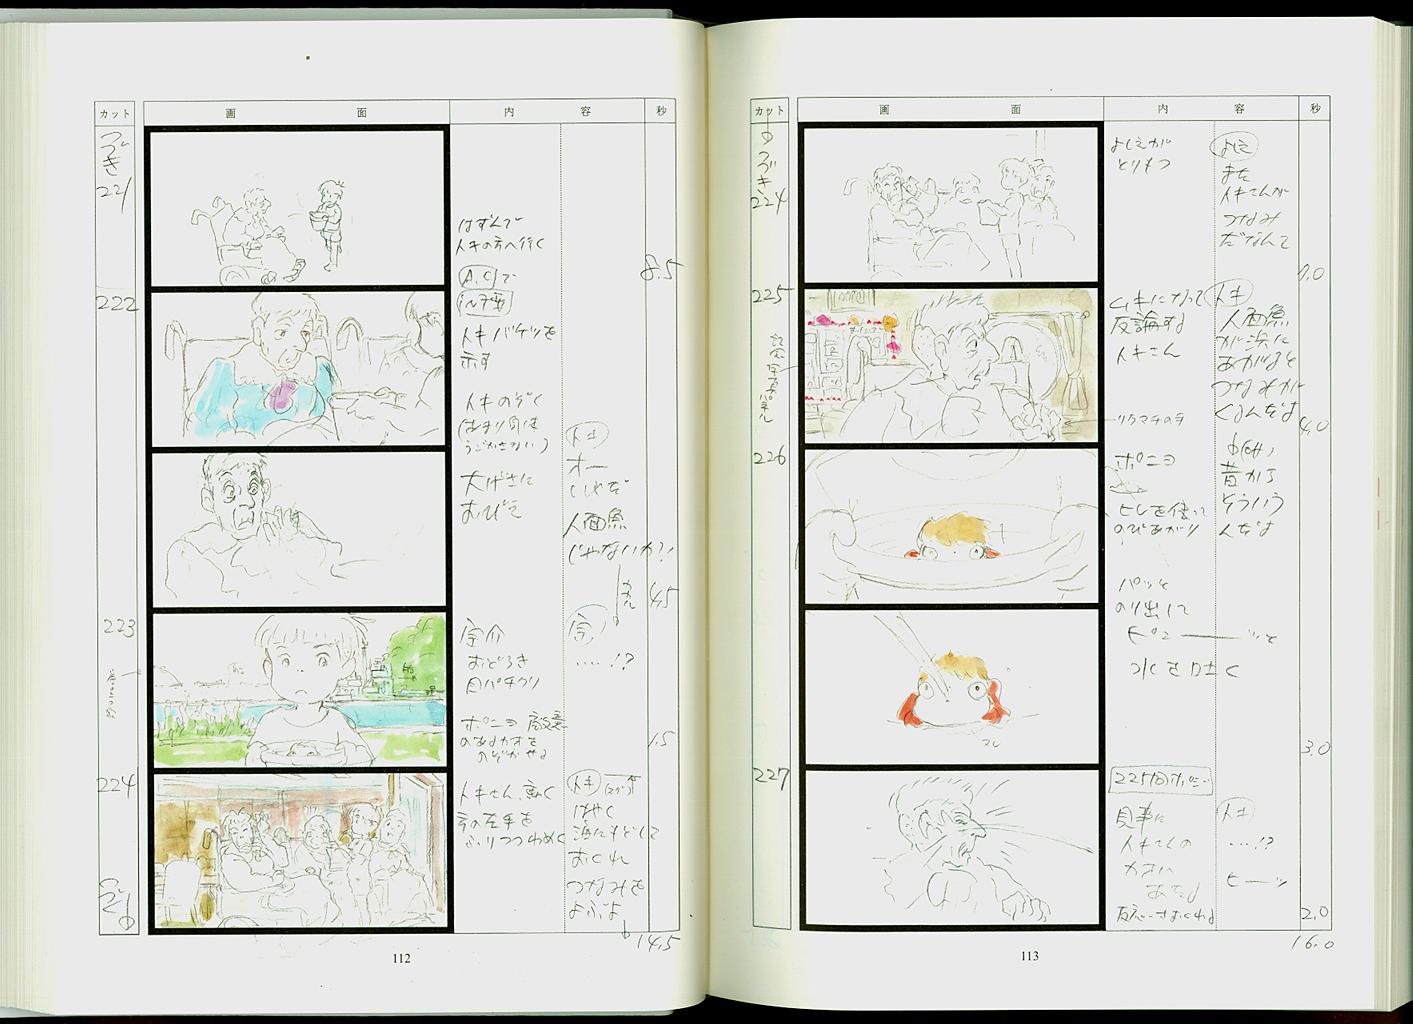 カット 画 面 内 容 秒
つづき
221
はずんで
トキの方へ行く
A.Cで
8.5
222
トキバケツを
示す
トキのぞく
(あまり身は
うごかさない)
大げさに
おびえ
トキ
オー
人面魚
じゃないか?!
4.5
223
宗介
おどろき
目パチクリ
宗
‥‥!?
ポニョ
のぞかせる
1.5
224
トキさん、
方の左手を
ふりつつわめく
トキ
はやく
海にもどして
おくれ
つなみを
よぶよ
つづく
14.5
112
カット 画 面 内 容 秒
つづき
224
よしえが
とりもつ
よしえ
また
トキさんが
つなみ
だなんて
7.0
225
ムキになって
反論する
トキさん
トキ
人面魚
が浜に
あがると
つなみが
くるんだよ
リウマチの手
4.0
昔から
そういう
んだよ
226
ポニョ
ヒレを使って
のびあがり
パッと
のり出して
ピュ━━ッと
水を吐く
ヒレ
3.0
227
225同ポジ
見事に
トキさんの
かおに
あたる
トキ
‥‥!?
ヒーッ
2.0
16.0
113